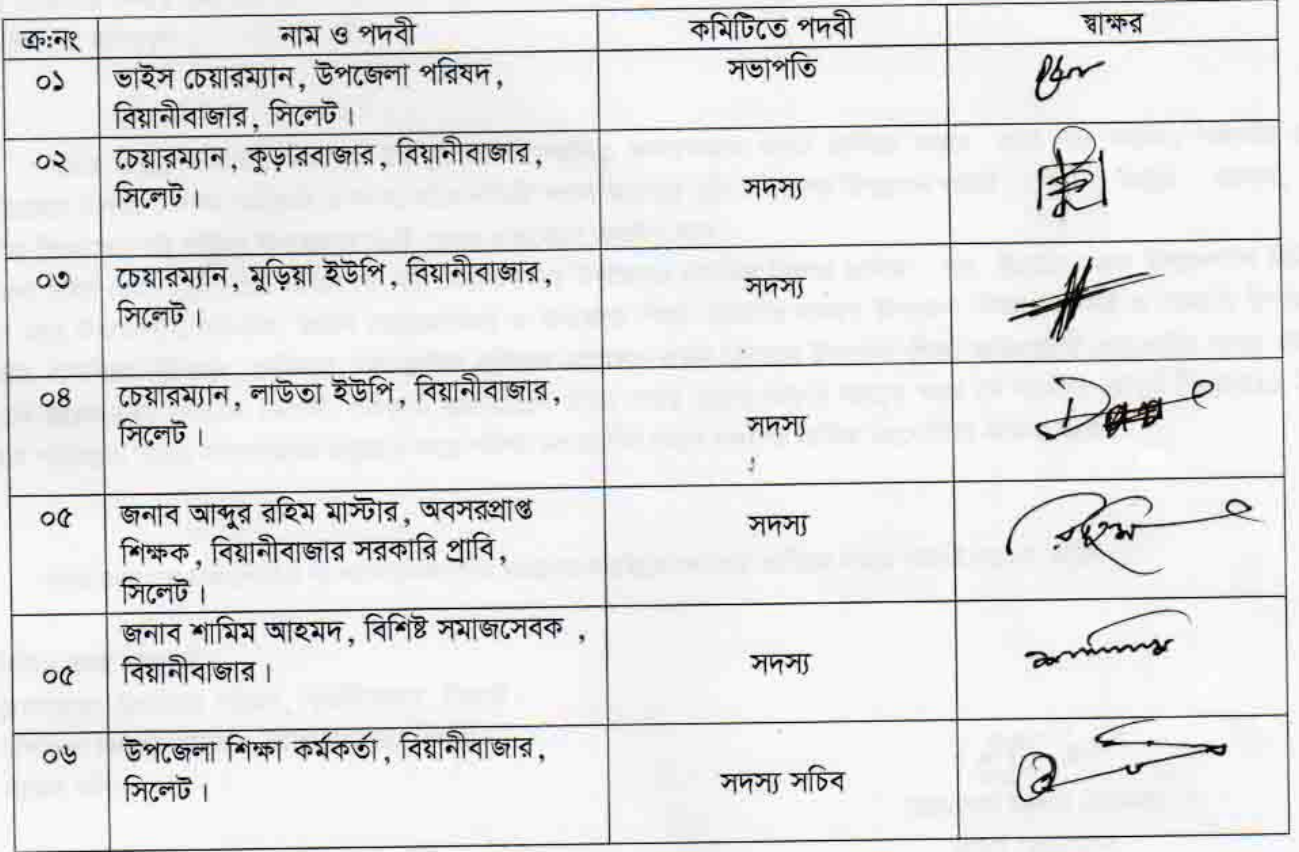 ক্র:নং নাম ও পদবী কমিটিতে পদবী স্বাক্ষর
০১ ভাইস চেয়ারম্যান, উপজেলা পরিষদ, সভাপতি
বিয়ানীবাজার, সিলেট।
০২ চেয়ারম্যান, কুড়ারবাজার, বিয়ানীবাজার,
সিলেট। সদস্য
০৩ চেয়ারম্যান, মুড়িয়া ইউপি, বিয়ানীবাজার, সদস্য
সিলেট।
০৪ চেয়ারম্যান, লাউতা ইউপি, বিয়ানীবাজার,
সিলেট। সদস্য
০৫ জনাব আব্দুর রহিম মাস্টার, অবসরপ্রাপ্ত সদস্য
শিক্ষক, বিয়ানীবাজার সরকারি প্রাবি,
সিলেট।
জনাব শামিম আহমদ, বিশিষ্ট সমাজসেবক ,
০৫ বিয়ানীবাজার। সদস্য
০৬ উপজেলা শিক্ষা কর্মকর্তা, বিয়ানীবাজার,
সিলেট। সদস্য সচিব